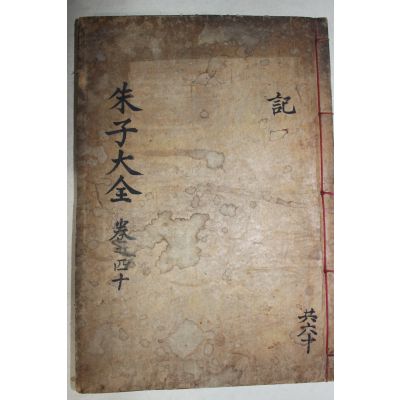 記
共六十
朱子大全
卷之四十